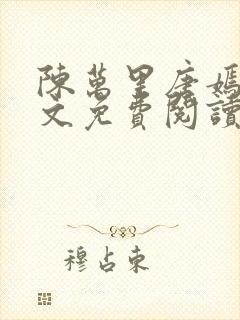 陳萬里唐嫣
文免費閱讀
穆占東